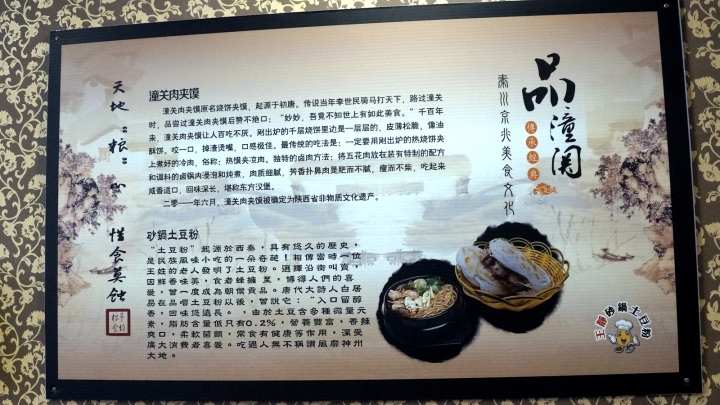 品潼関
傳承經典
秦川京兆美食文化
潼关肉夹馍
潼关肉夹馍原名烧饼夹馍，起源于初唐。传说当年李世民骑马打天下，路过潼关
时，品尝过潼关肉夹馍后赞不绝口：“妙妙，吾竟不知世上有如此美食。”千百年
来，潼关肉夹馍让人百吃不厌。刚出炉的千层烧饼里边是一层层的，皮薄松脆，像油
酥饼。咬一口，掉渣烫嘴，口感极佳。最传统的吃法是：一定要用刚出炉的热烧饼夹
上煮好的冷肉，俗称：热馍夹凉肉，独特的卤肉方法：将五花肉放在装有特制的配方
和调料的卤锅内浸泡和炖煮，肉质细腻，芳香扑鼻肉是肥而不腻，瘦而不柴，吃起来
咸香适口，回味深长，堪称东方汉堡。
二零一一年六月，潼关肉夹馍被确定为陕西省非物质文化遗产。
砂鍋土豆粉
“土豆粉”起源於西秦，具有悠久的歷史，
是民族風味小吃的一朵奇葩！相傳當時一位
王姓的老人發明了土豆粉。選擇沿街叫賣，
因鮮香味美，食者絡繹 業，博得人們的喜
愛，曾一度成為朝饌貢品。唐代大詩人白居
易在品嚐土豆粉以後，曾說它：“入口留醇
香，回味悠遠長。”，由於土豆含多種微量元
素，脂肪含量低只有0.2%，營養豐富，香辣
爽口，柔軟筋顫，常食有健康等作用，深受
廣大消費者喜愛。吃過人無不稱讚風靡神州
大地。
天地“粮”心
惜食莫蚀
王師砂鍋土豆粉